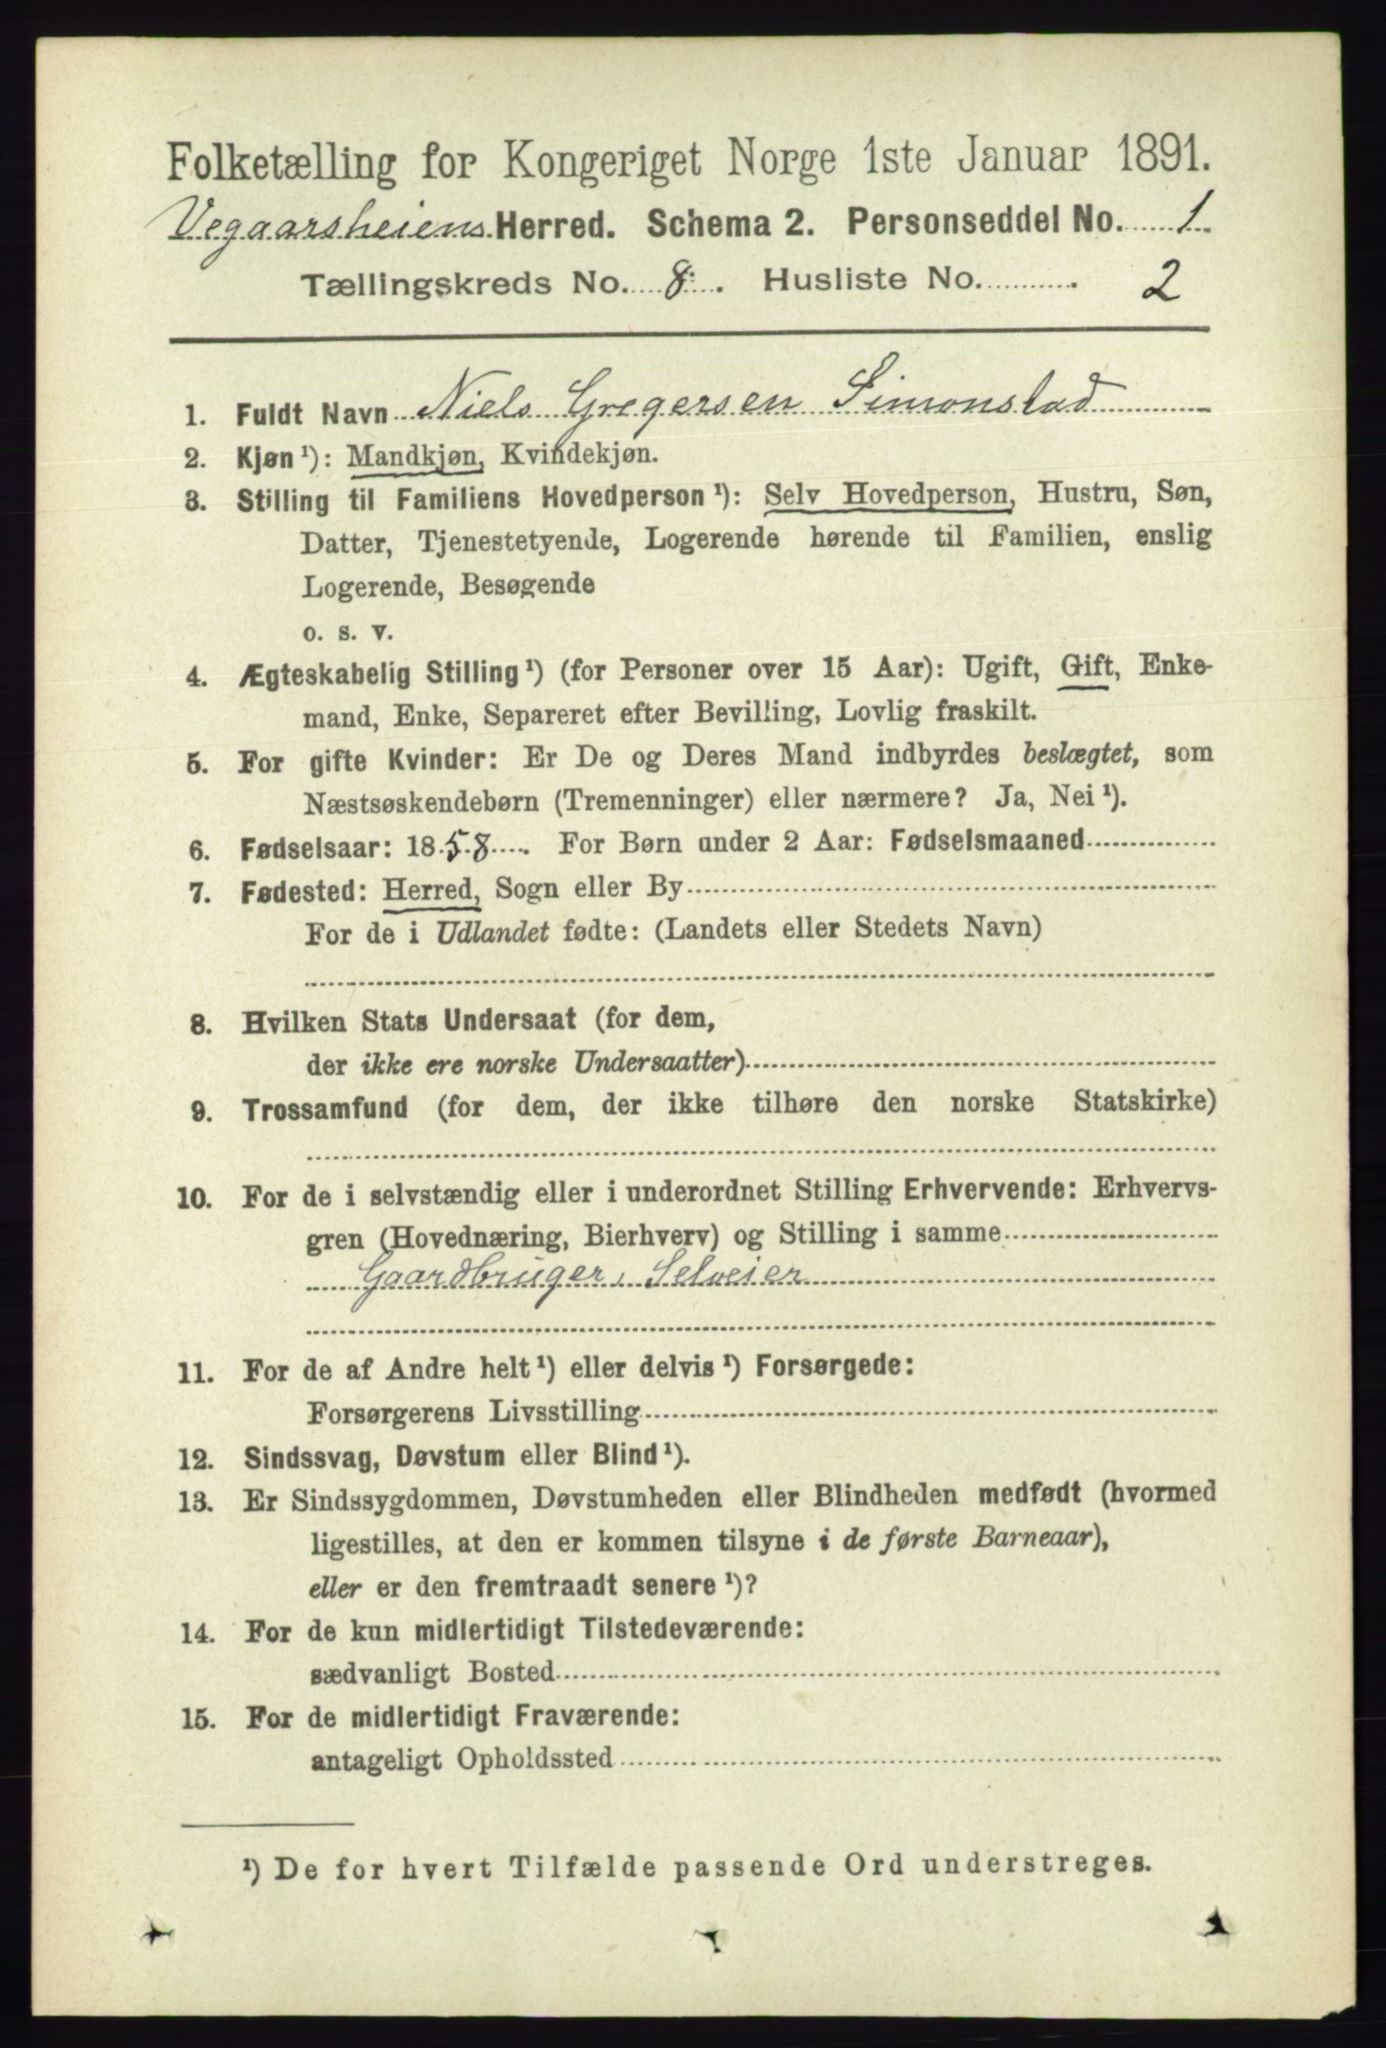 Folketælling for Kongeriget Norge 1ste Januar 1891.
Vegaarsheiens Herred. Schema 2. Personseddel No. 1
Tællingskreds No. 8. Husliste No. 2
1. Fuldt Navn Niels Gregersen Simonstad
2. Kjøn¹): Mandkjøn, Kvindekjøn.
3. Stilling til Familiens Hovedperson¹): Selv Hovedperson, Hustru, Søn,
Datter, Tjenestetyende, Logerende hørende til Familien, enslig
Logerende, Besøgende
o. s. v.
4. Ægteskabelig Stilling¹) (for Personer over 15 Aar): Ugift, Gift, Enke-
mand, Enke, Separeret efter Bevilling, Lovlig fraskilt.
5. For gifte Kvinder: Er De og Deres Mand indbyrdes beslægtet, som
Næstsøskendebørn (Tremenninger) eller nærmere? Ja, Nei¹).
6. Fødselsaar: 1858. For Børn under 2 Aar: Fødselsmaaned
7. Fødested: Herred, Sogn eller By
For de i Udlandet fødte: (Landets eller Stedets Navn)
8. Hvilken Stats Undersaat (for dem,
der ikke ere norske Undersaatter)
9. Trossamfund (for dem, der ikke tilhøre den norske Statskirke)
10. For de i selvstændig eller i underordnet Stilling Erhvervende: Erhvervs-
gren (Hovednæring, Bierhverv) og Stilling i samme
Gaardbruger, Selveier
11. For de af Andre helt¹) eller delvis¹) Forsørgede:
Forsørgerens Livsstilling
12. Sindssvag, Døvstum eller Blind¹).
13. Er Sindssygdommen, Døvstumheden eller Blindheden medfødt (hvormed
ligestilles, at den er kommen tilsyne i de første Barneaar),
eller er den fremtraadt senere¹)?
14. For de kun midlertidigt Tilstedeværende:
sædvanligt Bosted
15. For de midlertidigt Fraværende:
antageligt Opholdssted
¹) De for hvert Tilfælde passende Ord understreges.